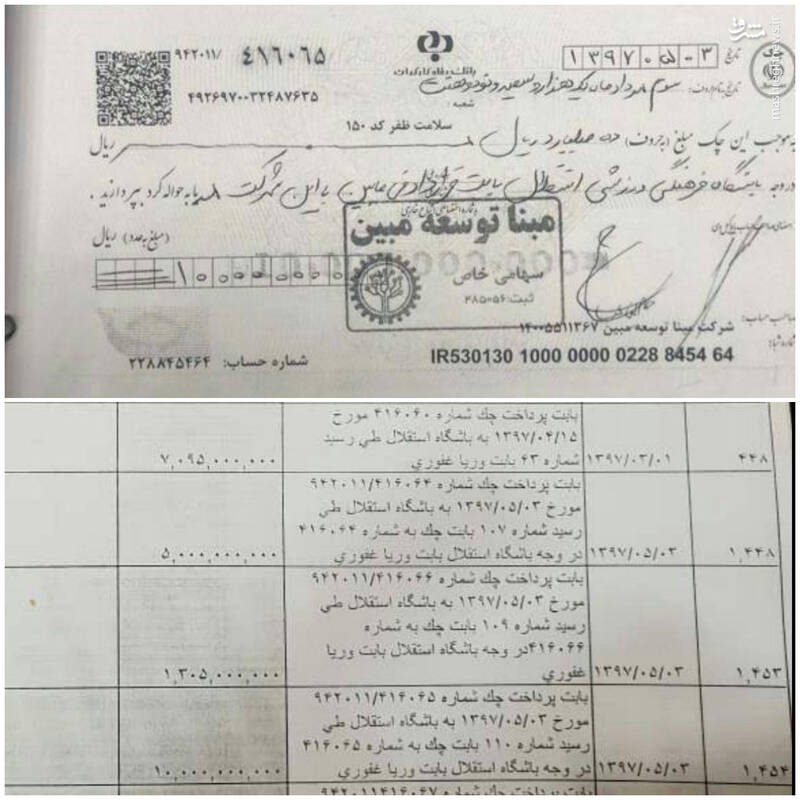 ۹۴۲۰۱۱/ ۴۱۶۰۶۵
۴۹۲۶۹۷۰۰۳۲۴۸۷۶۳۵
بانک رفاه کارگران
تاریخ ۱۳۹۷۰۵۰۳
مشرق
سوم مرداد ماه یکهزار و سیصد و نود و هفت
شعبه:
سلامت ظفر کد ۱۵۰
به موجب این چک مبلغ (بحروف) ده میلیارد ریال ریال
در وجه باشگاه فرهنگی ورزشی استقلال بابت قرارداد فی مابین با این شرکت یا به حواله کرد بپردازید.
مبلغ به عدد) ریال
۱۰۰۰۰۰۰۰۰۰۰
مبنا توسعه مبین
سهامی خاص
ثبت: ۴۸۵۰۵۶
صاحب حساب:
شرکت مبنا توسعه مبین ۱۴۰۰۵۵۱۱۳۶۷
شماره شبا:
IR530130 1000 0000 0228 8454 64
شماره حساب: ۲۲۸۸۴۵۴۶۴
بابت پرداخت چك شماره ۴۱۶۰۶۰ مورخ
۱۳۹۷/۰۴/۱۵ به باشگاه استقلال طي رسيد
۴۴۸ ۱۳۹۷/۰۳/۰۱ شماره ۶۳ بابت وريا غفوري ۷,۰۹۵,۰۰۰,۰۰۰
بابت پرداخت چك شماره ۹۴۲۰۱۱/۴۱۶۰۶۴
مورخ ۱۳۹۷/۰۵/۰۳ به باشگاه استقلال طي
رسيد شماره ۱۰۷ بابت چك به شماره ۴۱۶۰۶۴
۱,۴۴۸ ۱۳۹۷/۰۵/۰۳ در وجه باشگاه استقلال بابت وريا غفوري ۵,۰۰۰,۰۰۰,۰۰۰
بابت پرداخت چك شماره ۹۴۲۰۱۱/۴۱۶۰۶۶
مورخ ۱۳۹۷/۰۵/۰۳ به باشگاه استقلال طي
رسيد شماره ۱۰۹ بابت چك به شماره
۴۱۶۰۶۶در وجه باشگاه استقلال بابت وريا
۱,۴۵۳ ۱۳۹۷/۰۵/۰۳ غفوري ۱,۳۰۵,۰۰۰,۰۰۰
بابت پرداخت چك شماره ۹۴۲۰۱۱/۴۱۶۰۶۵
مورخ ۱۳۹۷/۰۵/۰۳ به باشگاه استقلال طي
رسيد شماره ۱۱۰ بابت چك به شماره ۴۱۶۰۶۵
۱,۴۵۴ ۱۳۹۷/۰۵/۰۳ در وجه باشگاه استقلال بابت وريا غفوري ۱۰,۰۰۰,۰۰۰,۰۰۰
بابت پرداخت چك شماره ۹۴۲۰۱۱۴۱۶۰۶۷